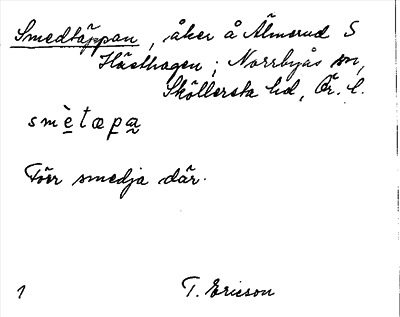 Smedtäppan, åker å Älmerud S
Hästhagen; Norrbyås sn,
Sköllersta hd, Ör. l.
smètæpa
Förr smedja där.
1 T. Ericson